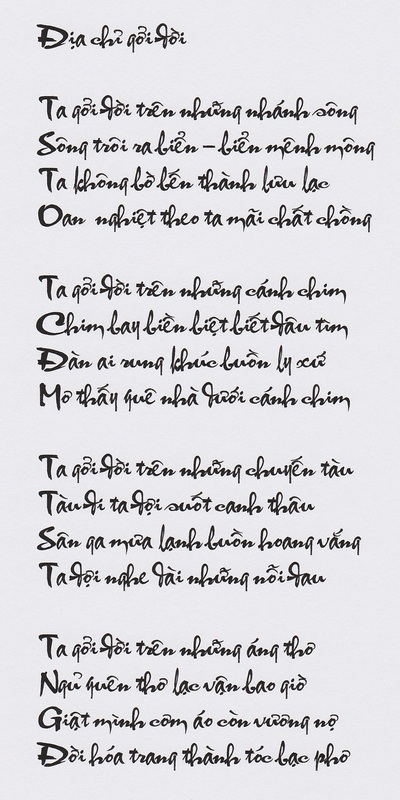 Địa chỉ gởi đời
Ta gởi đời trên những nhánh sông
Sông trôi ra biển – biển mênh mông
Ta không bờ bến thành lưu lạc
Oan nghiệt theo ta mãi chất chồng
Ta gởi đời trên những cánh chim
Chim bay biền biệt biết đâu tìm
Đàn ai rung khúc buồn ly xứ
Mơ thấy quê nhà dưới cánh chim
Ta gởi đời trên những chuyến tàu
Tàu đi ta đợi suốt canh thâu
Sân ga mưa lạnh buồn hoang vắng
Ta đợi nghe dài những nỗi đau
Ta gởi đời trên những áng thơ
Ngủ quên thơ lạc vận bao giờ
Giật mình cơm áo còn vương nợ
Đời hóa trang thành tóc bạc phơ